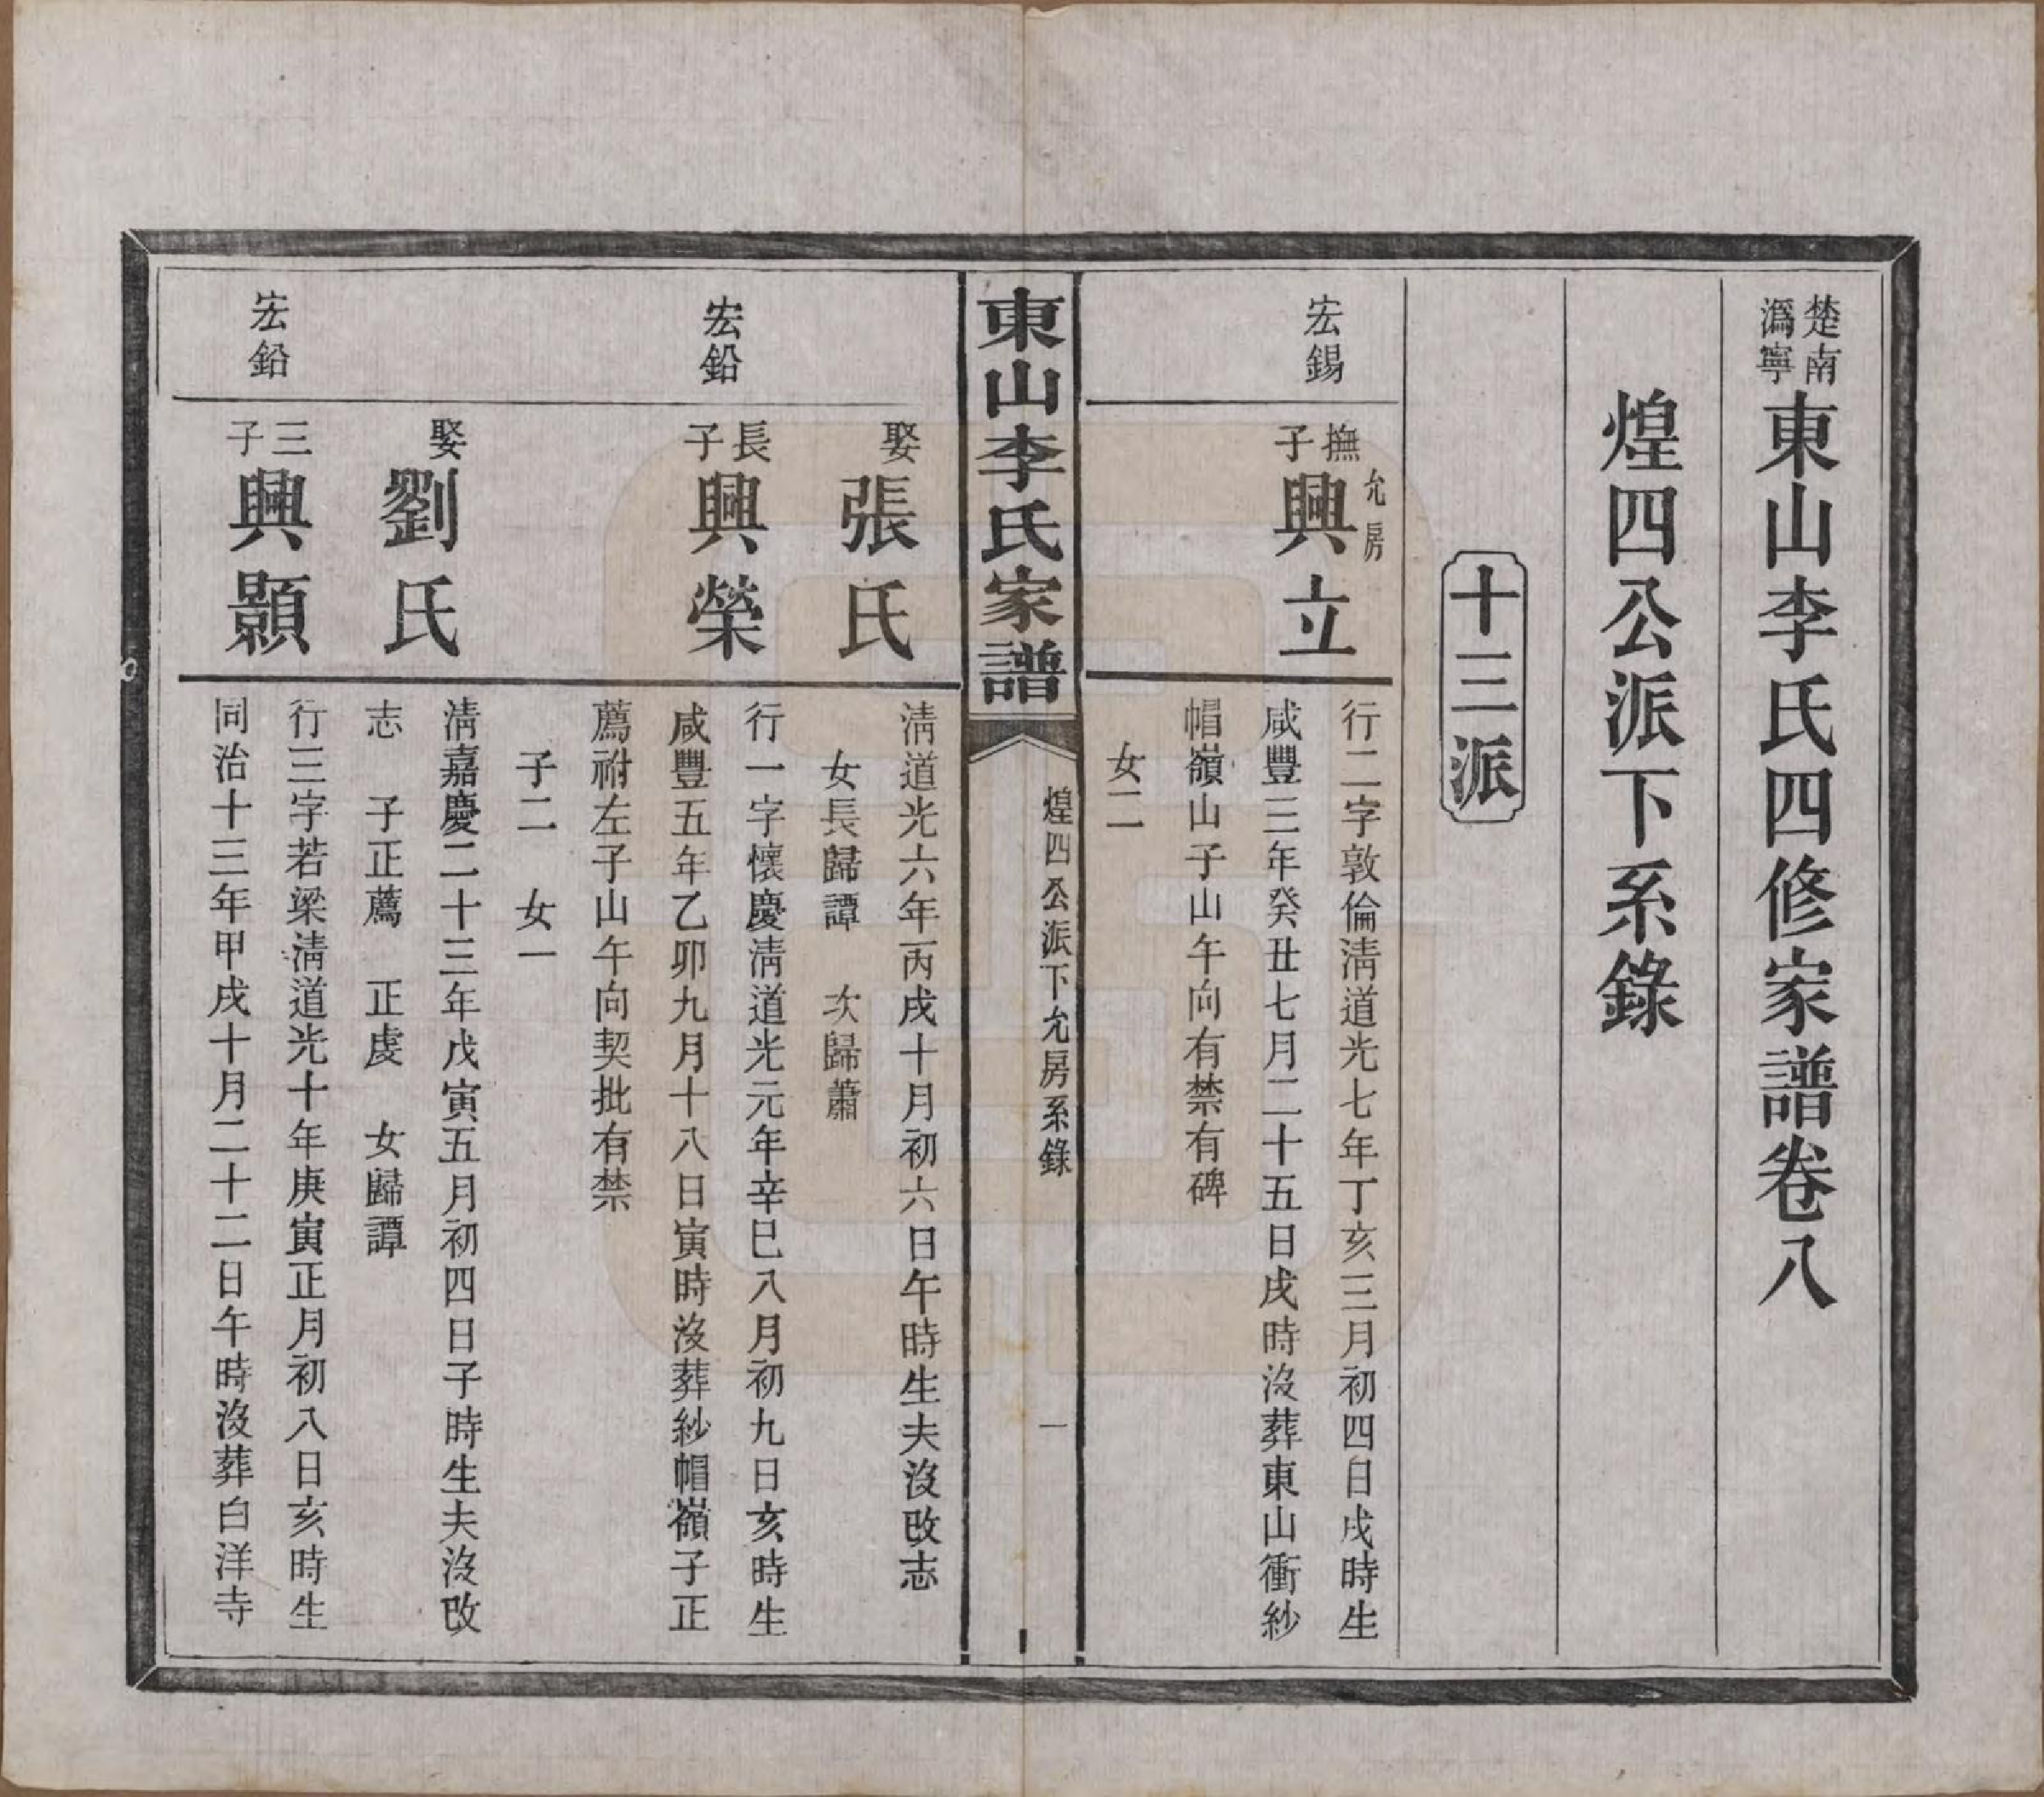 楚南
溈寧
東山李氏四修家譜卷八
煌四公派下系錄
十三派
宏錫
撫子
允房
興立
行二字敦倫清道光七年丁亥三月初四日戌時生
咸豐三年癸丑七月二十五日戌時沒葬東山衝紗
帽嶺山子山午向有禁有碑
女二
東山李氏家譜
煌四公派下允房系錄
一
娶張氏
清道光六年丙戌十月初六日午時生夫沒改志
女長歸譚 次歸蕭
宏鉛
長子
興榮
行一字懷慶清道光元年辛巳八月初九日亥時生
咸豐五年乙卯九月十八日寅時沒葬紗帽嶺子正
薦祔左子山午向契批有禁
子二 女一
娶劉氏
清嘉慶二十三年戊寅五月初四日子時生夫沒改
志 子正薦 正虔 女歸譚
宏鉛
三子
興顥
行三字若梁清道光十年庚寅正月初八日亥時生
同治十三年甲戌十月二十二日午時沒葬白洋寺